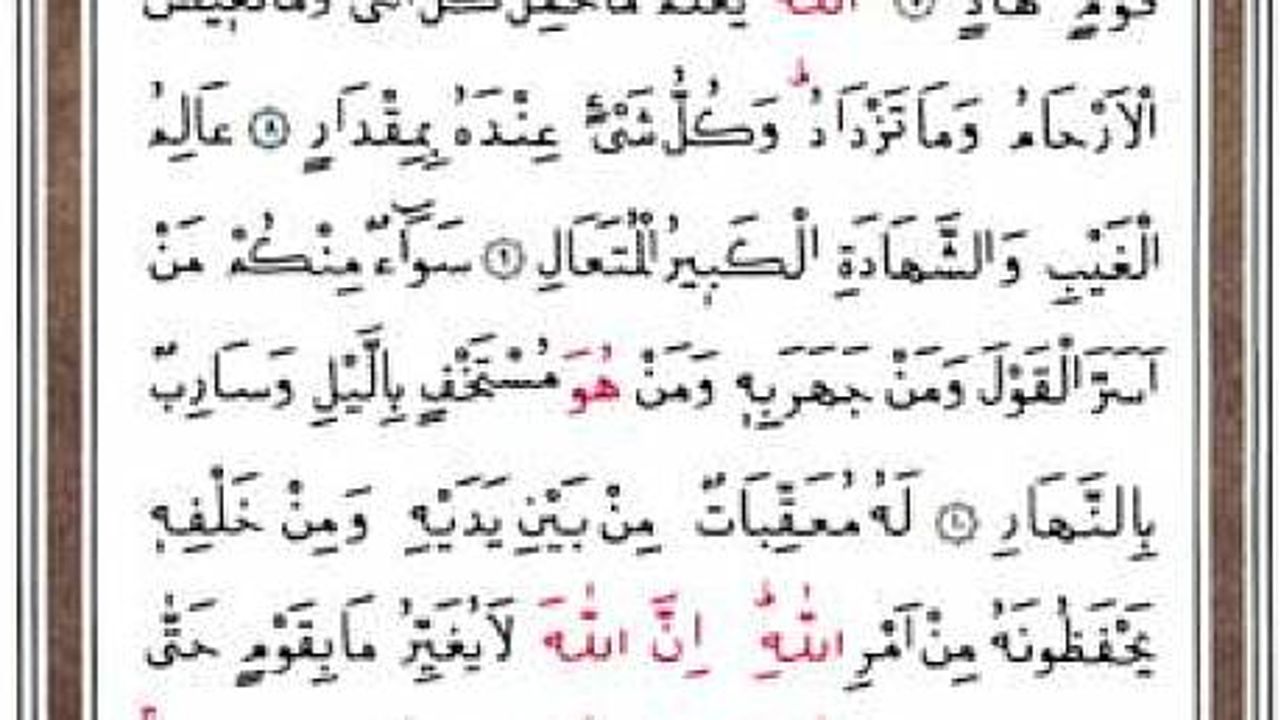 قَوْمٍ هَادٍ ۝٧ اَللّٰهُ يَعْلَمُ مَا تَحْمِلُ كُلُّ اُنْثٰى وَمَا تَغٖيضُ
الْاَرْحَامُ وَمَا تَزْدَادُۜ وَكُلُّ شَيْءٍ عِنْدَهُ بِمِقْدَارٍ ۝٨ عَالِمُ
الْغَيْبِ وَالشَّهَادَةِ الْكَبٖيرُ الْمُتَعَالِ ۝٩ سَوَٓاءٌ مِنْكُمْ مَنْ
اَسَرَّ الْقَوْلَ وَمَنْ جَهَرَ بِهٖ وَمَنْ هُوَ مُسْتَخْفٍ بِالَّيْلِ وَسَارِبٌ
بِالنَّهَارِ ۝١٠ لَهُ مُعَقِّبَاتٌ مِنْ بَيْنِ يَدَيْهِ وَمِنْ خَلْفِهٖ
يَحْفَظُونَهُ مِنْ اَمْرِ اللّٰهِۜ اِنَّ اللّٰهَ لَا يُغَيِّرُ مَا بِقَوْمٍ حَتّٰى